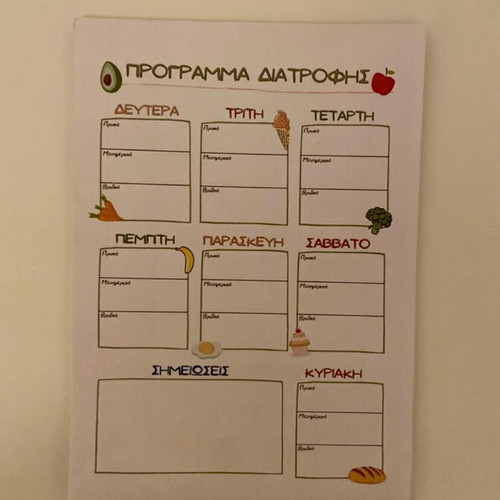 ΠΡΟΓΡΑΜΜΑ ΔΙΑΤΡΟΦΗΣ
ΔΕΥΤΕΡΑ
Πρωινό
Μεσημεριανό
Βραδινό
ΤΡΙΤΗ
Πρωινό
Μεσημεριανό
Βραδινό
ΤΕΤΑΡΤΗ
Πρωινό
Μεσημεριανό
Βραδινό
ΠΕΜΠΤΗ
Πρωινό
Μεσημεριανό
Βραδινό
ΠΑΡΑΣΚΕΥΗ
Πρωινό
Μεσημεριανό
Βραδινό
ΣΑΒΒΑΤΟ
Πρωινό
Μεσημεριανό
Βραδινό
ΣΗΜΕΙΩΣΕΙΣ
ΚΥΡΙΑΚΗ
Πρωινό
Μεσημεριανό
Βραδινό